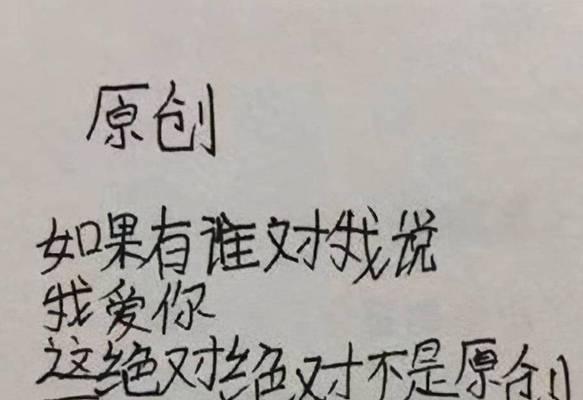 原创
如果有谁对我说
我爱你
这绝对绝对不是原创